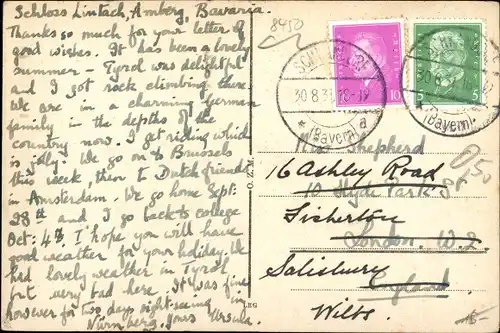 Schloss Lintach, Amberg, Bavaria.
Thanks so much for your letter of
good wishes. It has been a lovely
summer – Tyrol was delightful
and I got rock climbing there.
We are in a charming German
family in the depths of the
country now. I get riding which
is jolly. We go on to Brussels
this week, then to Dutch friends
in Amsterdam. We go home Sept:
28th and I go back to college
Oct: 4th. I hope you will have
good weather for your holiday. We
had lovely weather in Tyrol
but very bad here. It was fine
however for two days sight-seeing in
Nürnberg. Yours Ursula.
8450
30.8.31.18-19
(Bayern) a
10
30.8.
(Bayern)
5
Miss Shepherd
16 Ashley Road
10 Hyde Park St
Fisherton
London. W.2
Salisbury
England
Wilts.